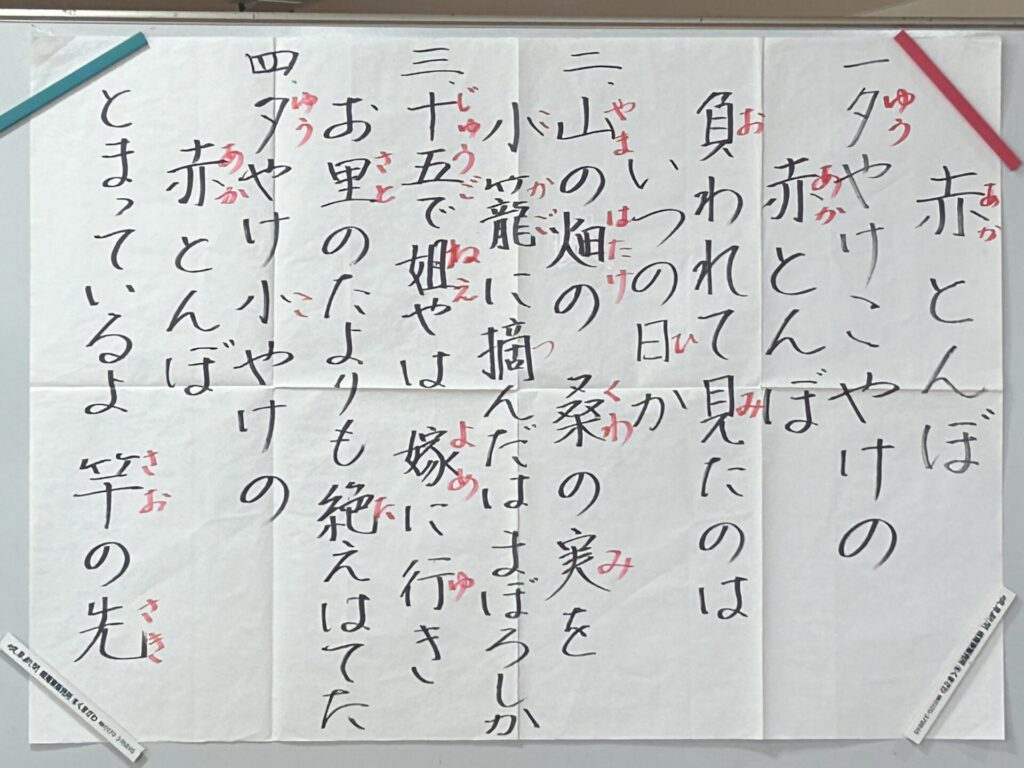 赤とんぼ
一夕やけこやけの
赤とんぼ
負われて見たのは
いつの日か
二、山の畑の 桑の実を
小籠に摘んだはまぼろしか
三、十五で姐やは 嫁に行き
お里のたよりも絶えはてた
四、夕やけ小やけの
赤とんぼ
とまっているよ 竿の先